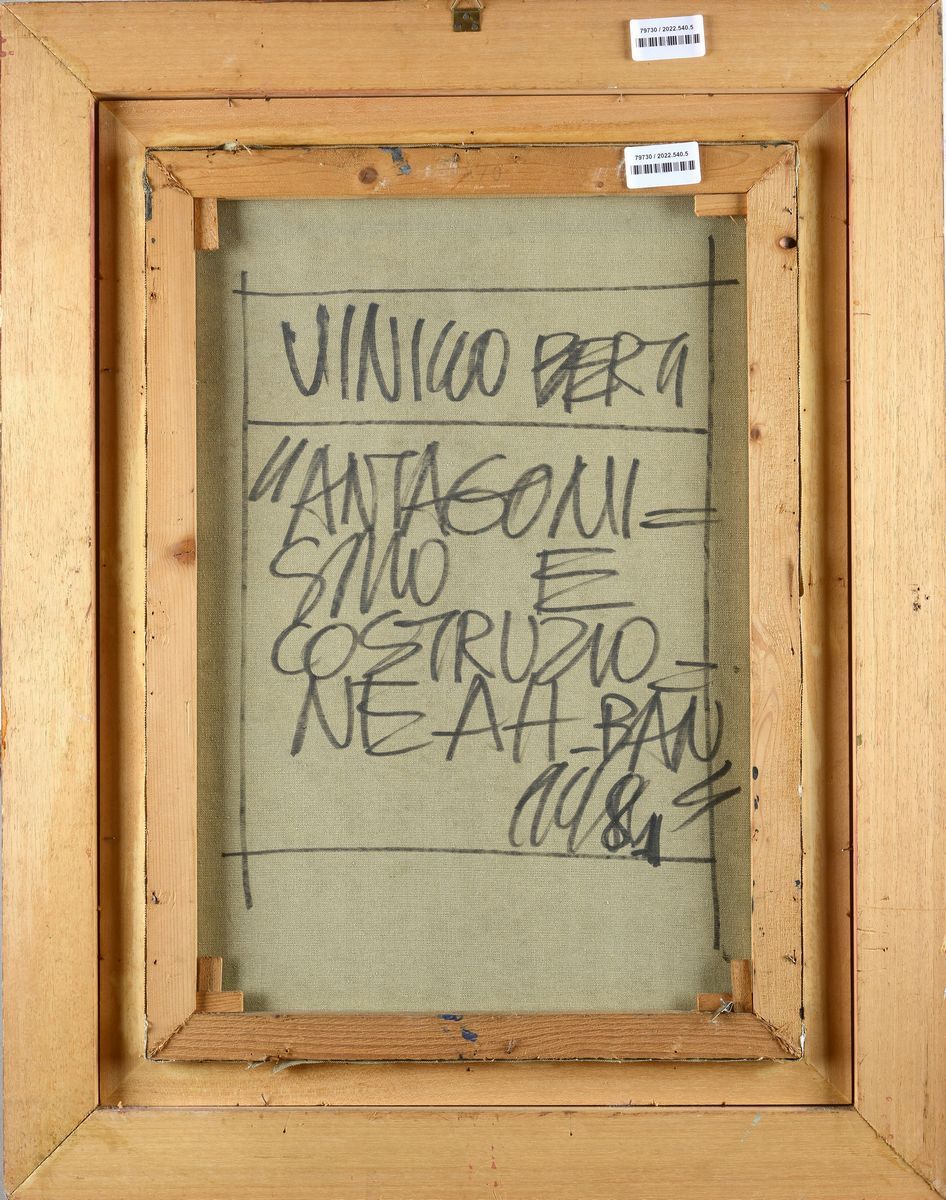 79730 / 2022.540.5
79730 / 2022.540.5
VINICIO BERTI
"ANTAGONI=
SMO E
COSTRUZIO=
NE AH-BAN
1981"